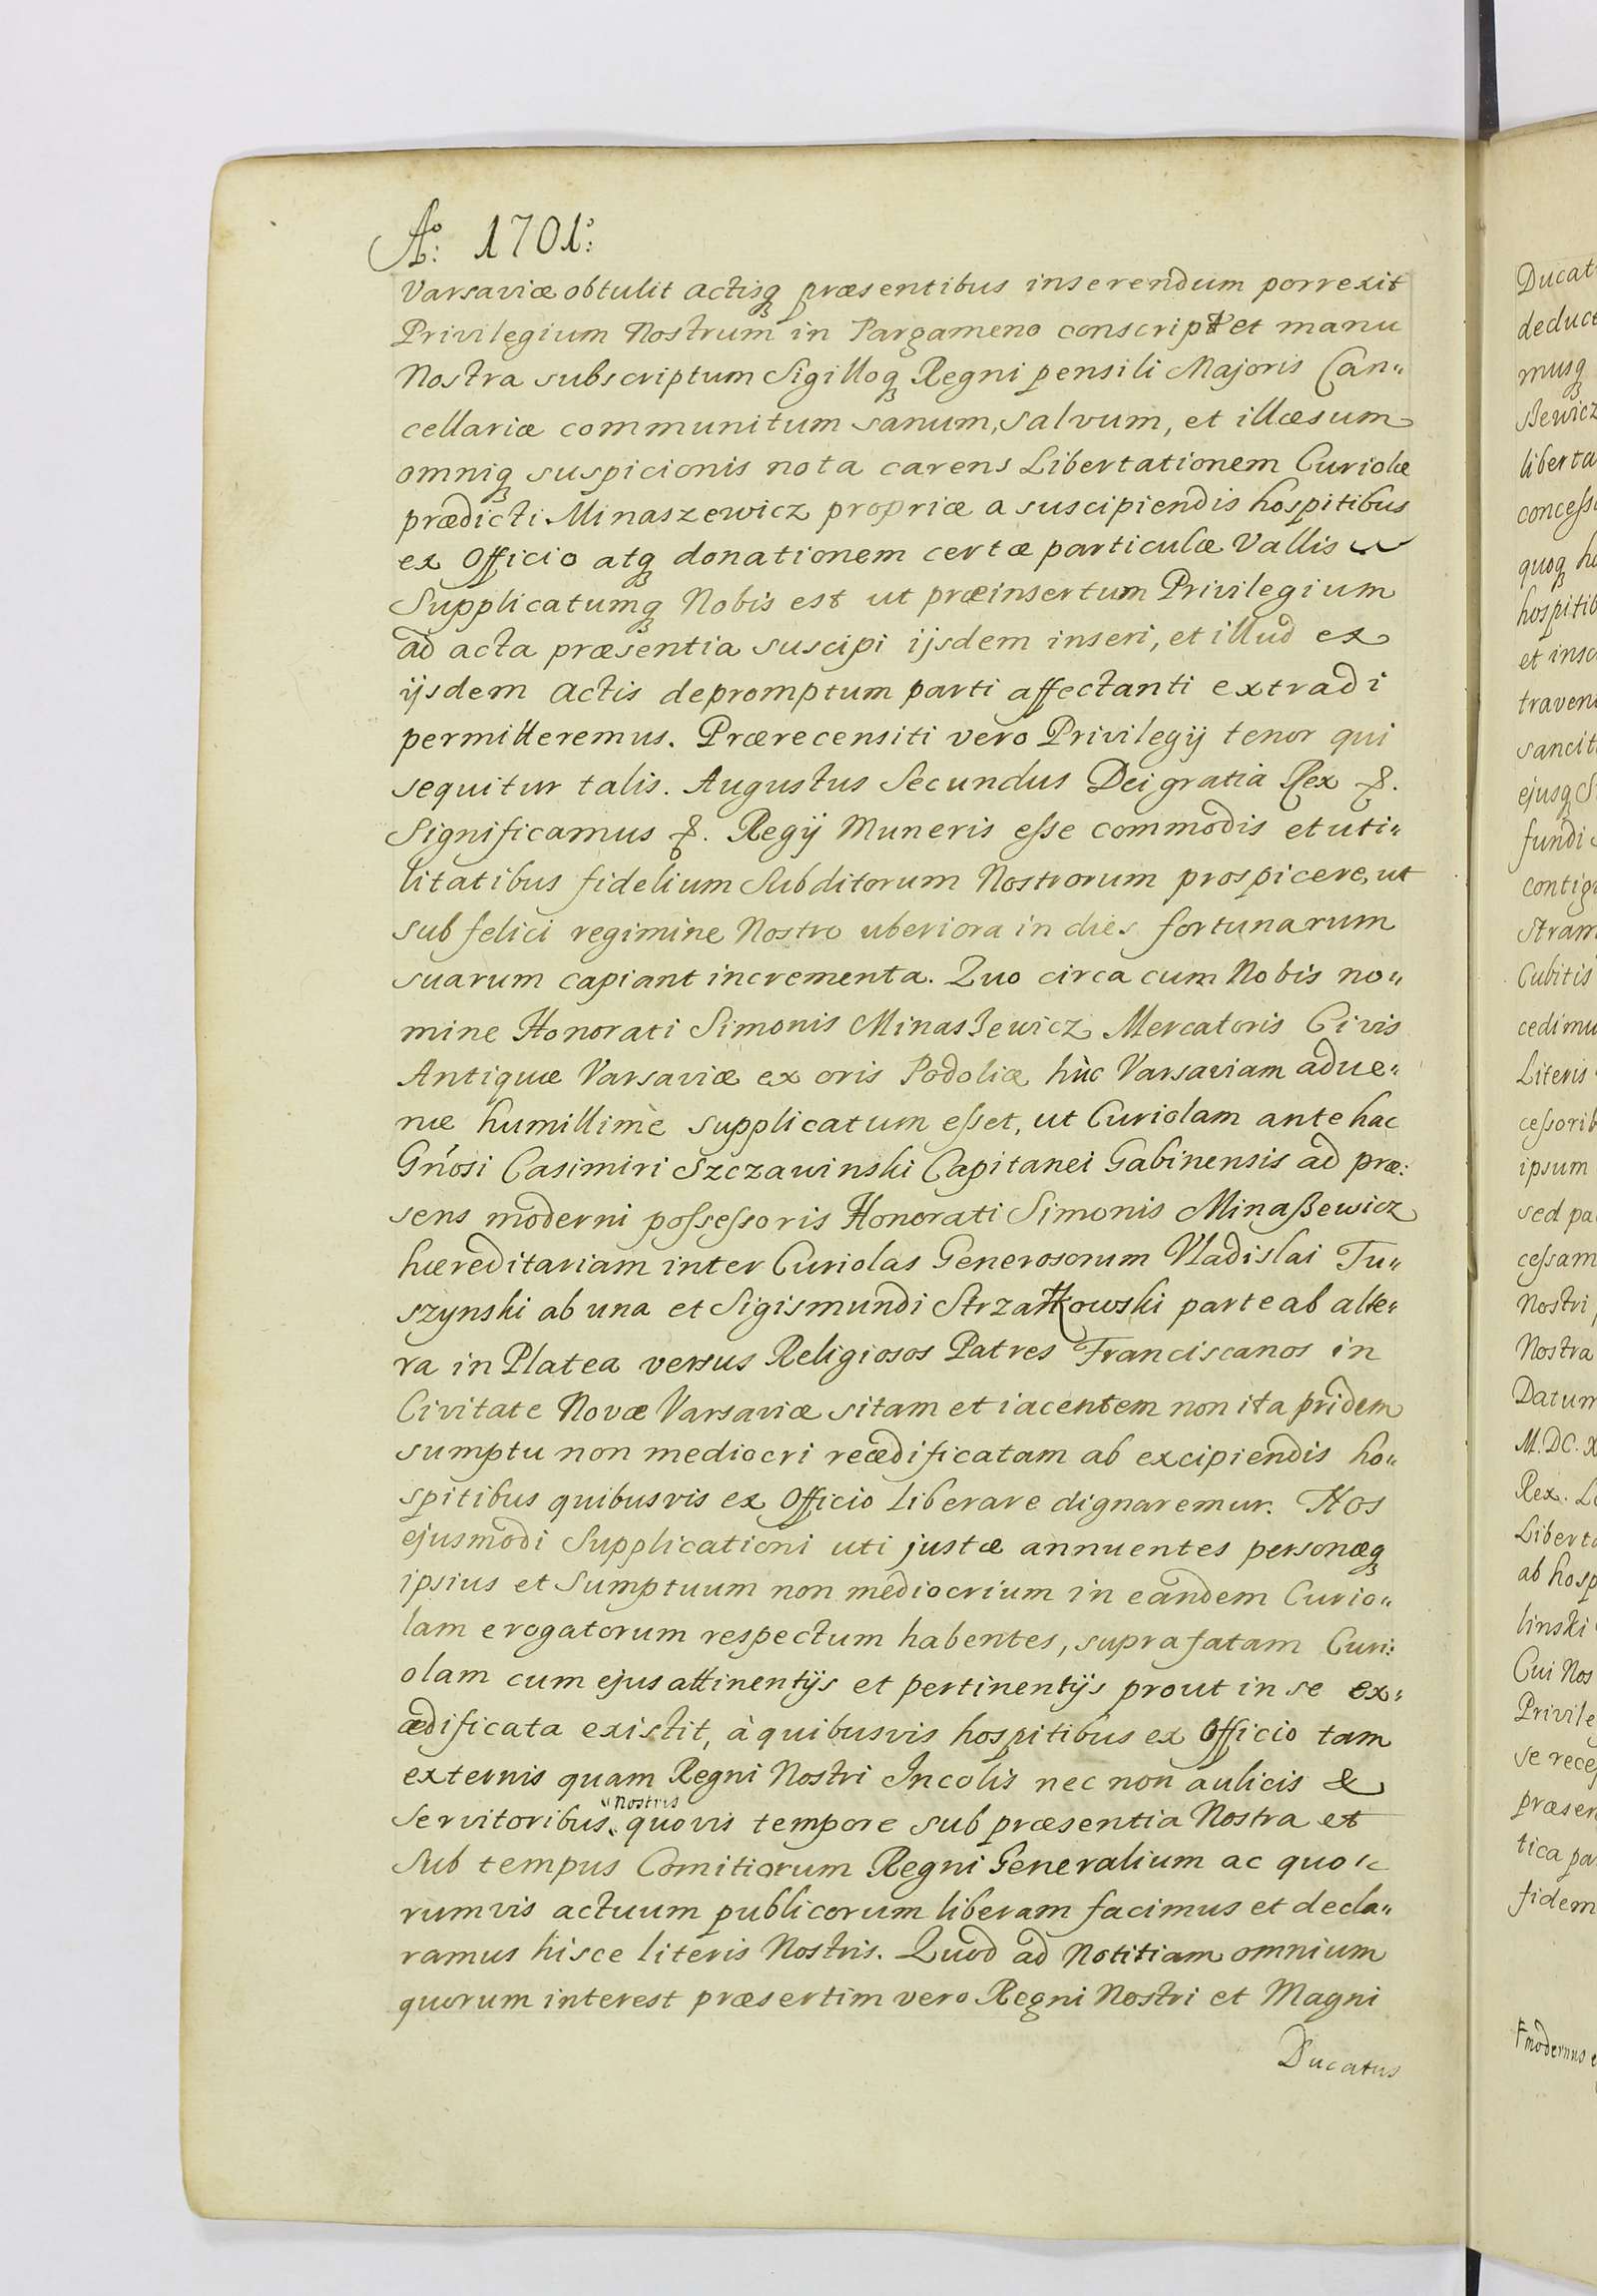 Aº: 1701º:
Varsaviæ obtulit actisq præsentibus inserendum porrexit
Privilegium Nostrum in Pargameno conscript et manu
Nostra subscriptum Sigilloq Regni pensili Majoris Can„
cellariæ communitum sanum, salvum, et illæsum
omniq suspicionis nota carens Libertationem Curiolæ
prædicti Minaszewicz propriæ a suscipiendis hospitibus
ex Officio atq donationem certæ particulæ Vallis
Supplicatumq Nobis est ut præinsertum Privilegium
ad acta præsentia suscipi ijsdem inseri, et illud ex
ijsdem actis depromptum parti affectanti extradi
permitteremus. Prærecensiti vero Privilegij tenor qui
sequitur talis. Augustus Secundus Dei gratia Rex &.
Significamus &. Regij Muneris eſse commodis et uti„
litatibus fidelium Subditorum Nostrorum prospicere, ut
sub felici regimine Nostro uberiora in dies fortunarum
suarum capiant incrementa. Quo circa cum Nobis no„
mine Honorati Simonis Minaszewicz Mercatoris Civis
Antiquæ Varsaviæ ex oris Podoliæ hùc Varsaviam adue„
næ humillimè supplicatum eſset, ut Curiolam ante hac
Gn̄osi Casimiri Szczawinski Capitanei Gabinensis ad præ:
sens moderni poſseſsoris Honorati Simonis Minaßewicz
hæreditariam inter Curiolas Generosorum Vladislai Tu„
szynski ab una et Sigismundi Strzałkowski parte ab alte„
ra in Platea versus Religiosos Patres Franciscanos in
Civitate Novæ Varsaviæ sitam et iacentem non ita pridem
sumptu non mediocri reædificatam ab excipiendis ho„
spitibus quibusvis ex Officio liberare dignaremur. Nos
ejusmodi Supplicationi uti justæ annuentes personæq
ipsius et Sumptuum non mediocrium in eandem Curio„
lam erogatorum respectum habentes, suprafatam Curi:
olam cum ejus attinentijs et pertinentijs prout in se ex„
ædificata existit, à quibusvis hospitibus ex Officio tam
externis quam Regni Nostri Incolis nec non aulicis &
Servitoribus nostris quovis tempore sub præsentia Nostra et
Sub tempus Comitiorum Regni Generalium ac quo„
rumvis actuum publicorum liberam facimus et decla„
ramus hisce literis Nostris. Quod ad Notitiam omnium
quorum interest præsertim vero Regni Nostri et Magni
Ducatus
Ducat
deduce
musq
ßewicz
liberta
conceſs
quoq ho
hospitib
et insc
traven
sancit
ejusq S
fundi
contig
stram
Cubitis
cedimu
Literis
ceſsorib
ipsum
sed pa
ceſsam
Nostri p
Nostra
Datum
M.DC.X
Rex. L
Liberta
ab hosp
linski
Cui Nos
Privile
se rece
præsen
tica pa
fidem
modernus e